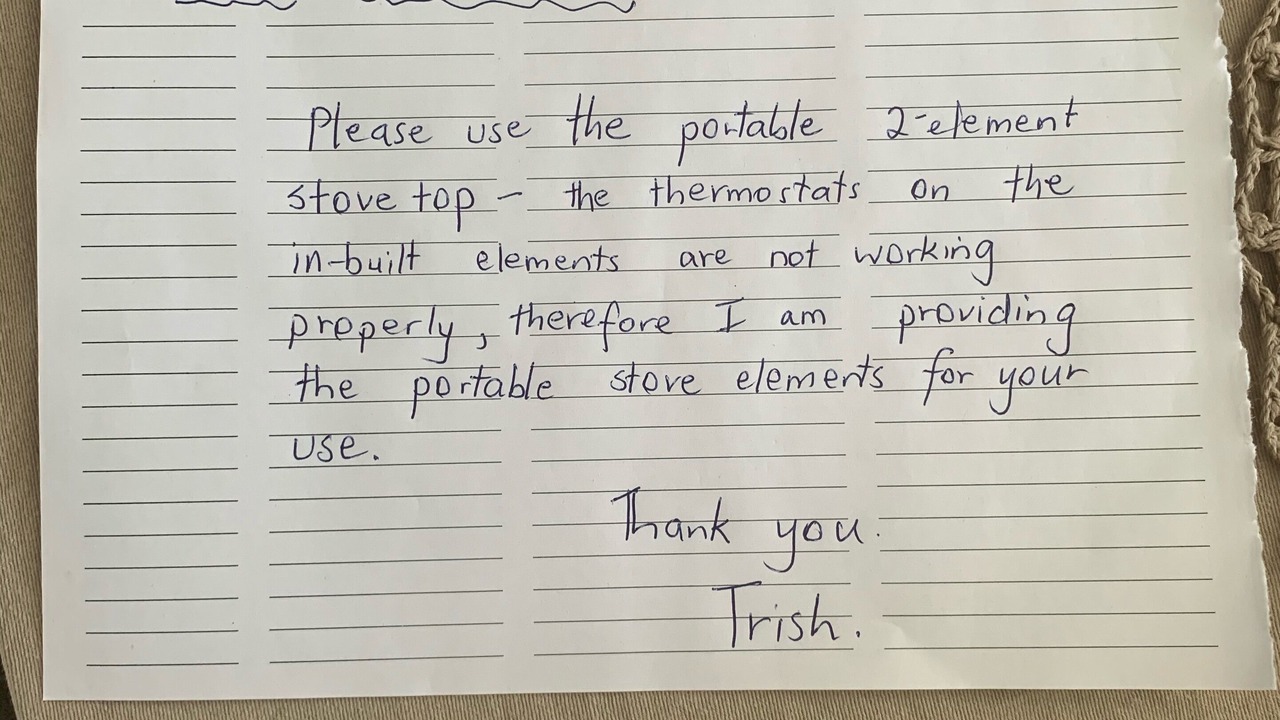 Please use the portable 2-element
stove top - the thermostats on the
in-built elements are not working
properly, therefore I am providing
the portable stove elements for your
use.
Thank you.
Trish.